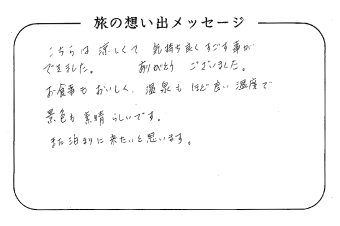 旅の想い出メッセージ
こちらは涼しくて 気持ち良くすごす事が
できました。 ありがとう ございました。
お食事もおいしく、温泉もほど良い温度で
景色も素晴らしいです。
また泊まりに来たいと思います。